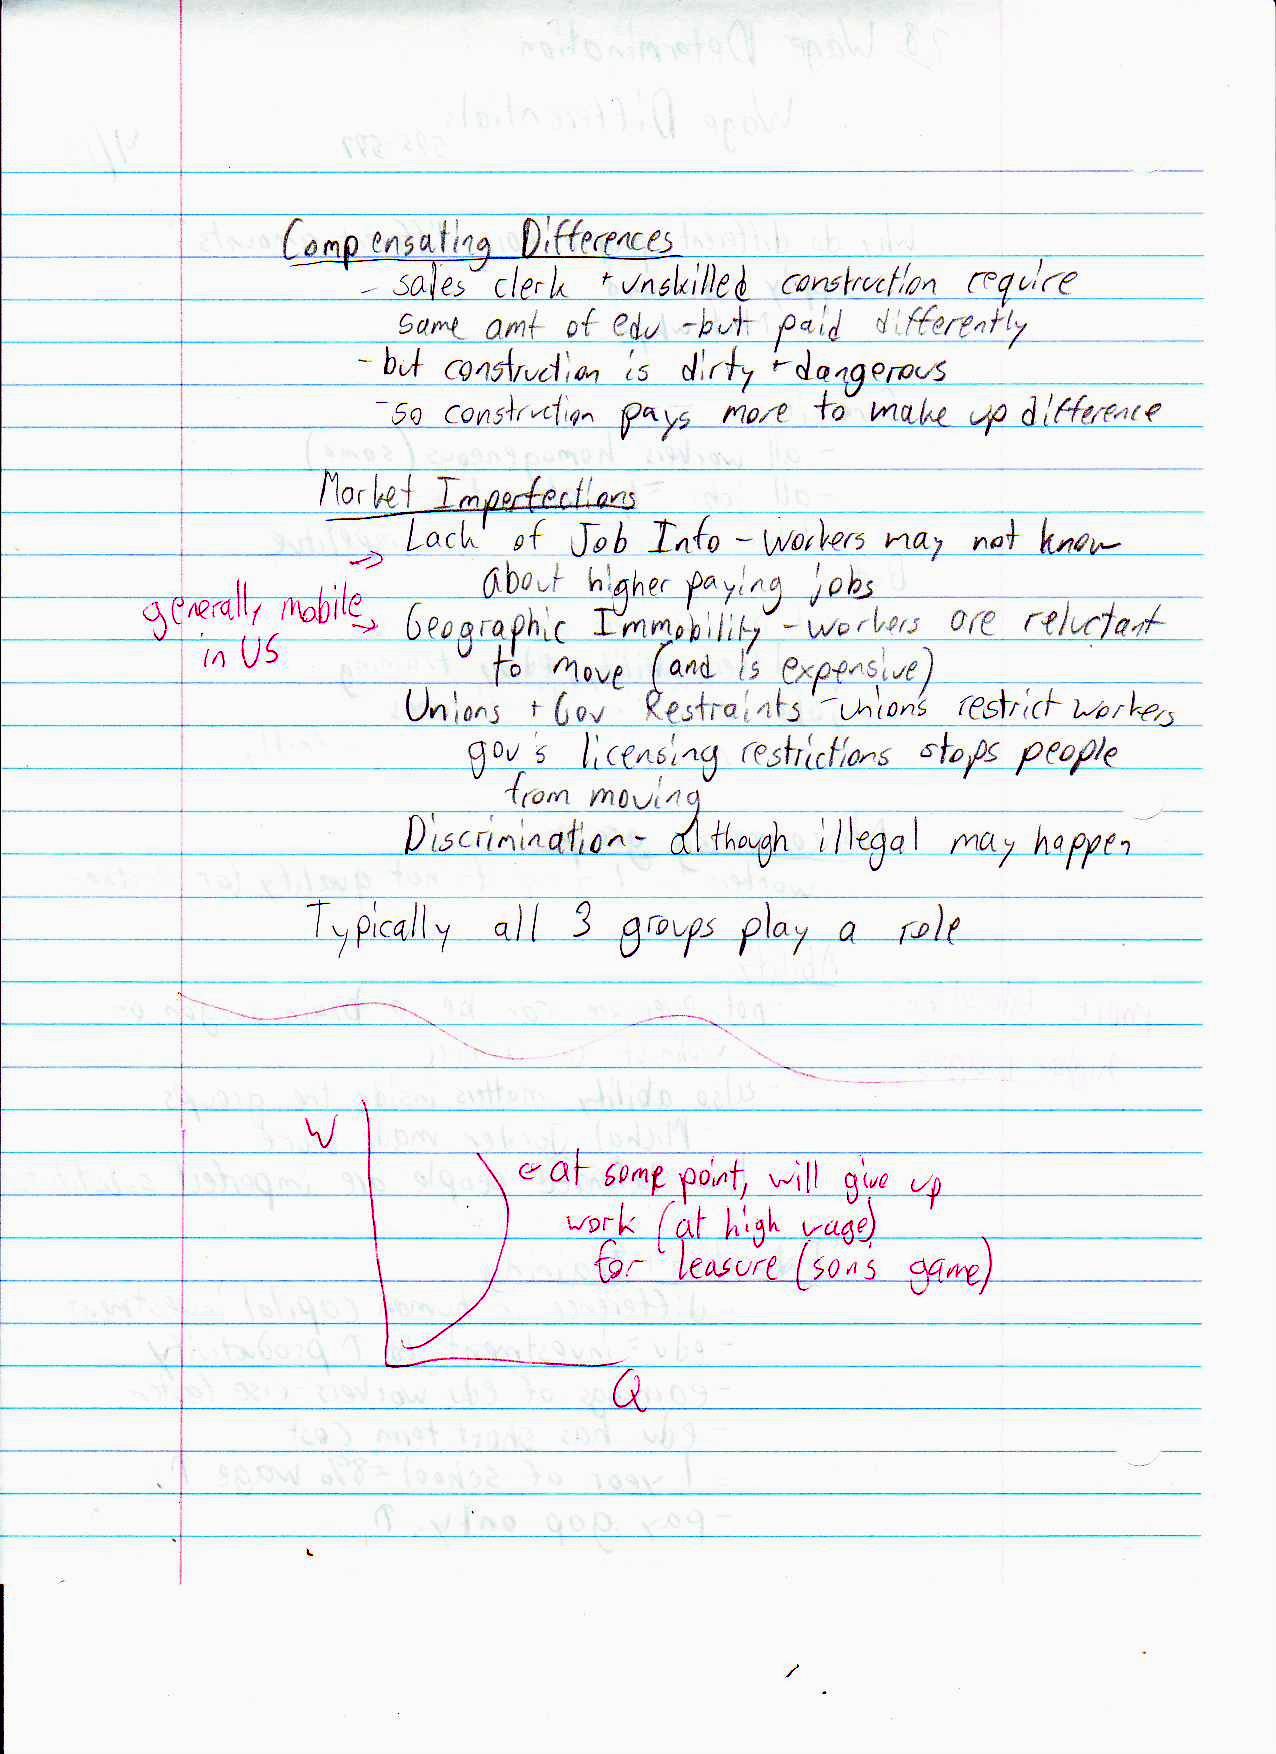 Compensating Differences
- sales clerk + unskilled construction require
same amt of edu - but paid differently
- but construction is dirty + dangerous
- so construction pays more to make up difference
Market Imperfections
Lack of Job Info - workers may not know
about higher paying jobs
generally mobile
in US
Geographic Immobility - workers are reluctant
to move (and is expensive)
Unions + Gov Restraints - unions restrict workers
gov's licensing restrictions stops people
from moving
Discrimination - although illegal may happen
Typically all 3 groups play a role
W
at some point, will give up
work (at high wage)
for leasure (son's game)
Q